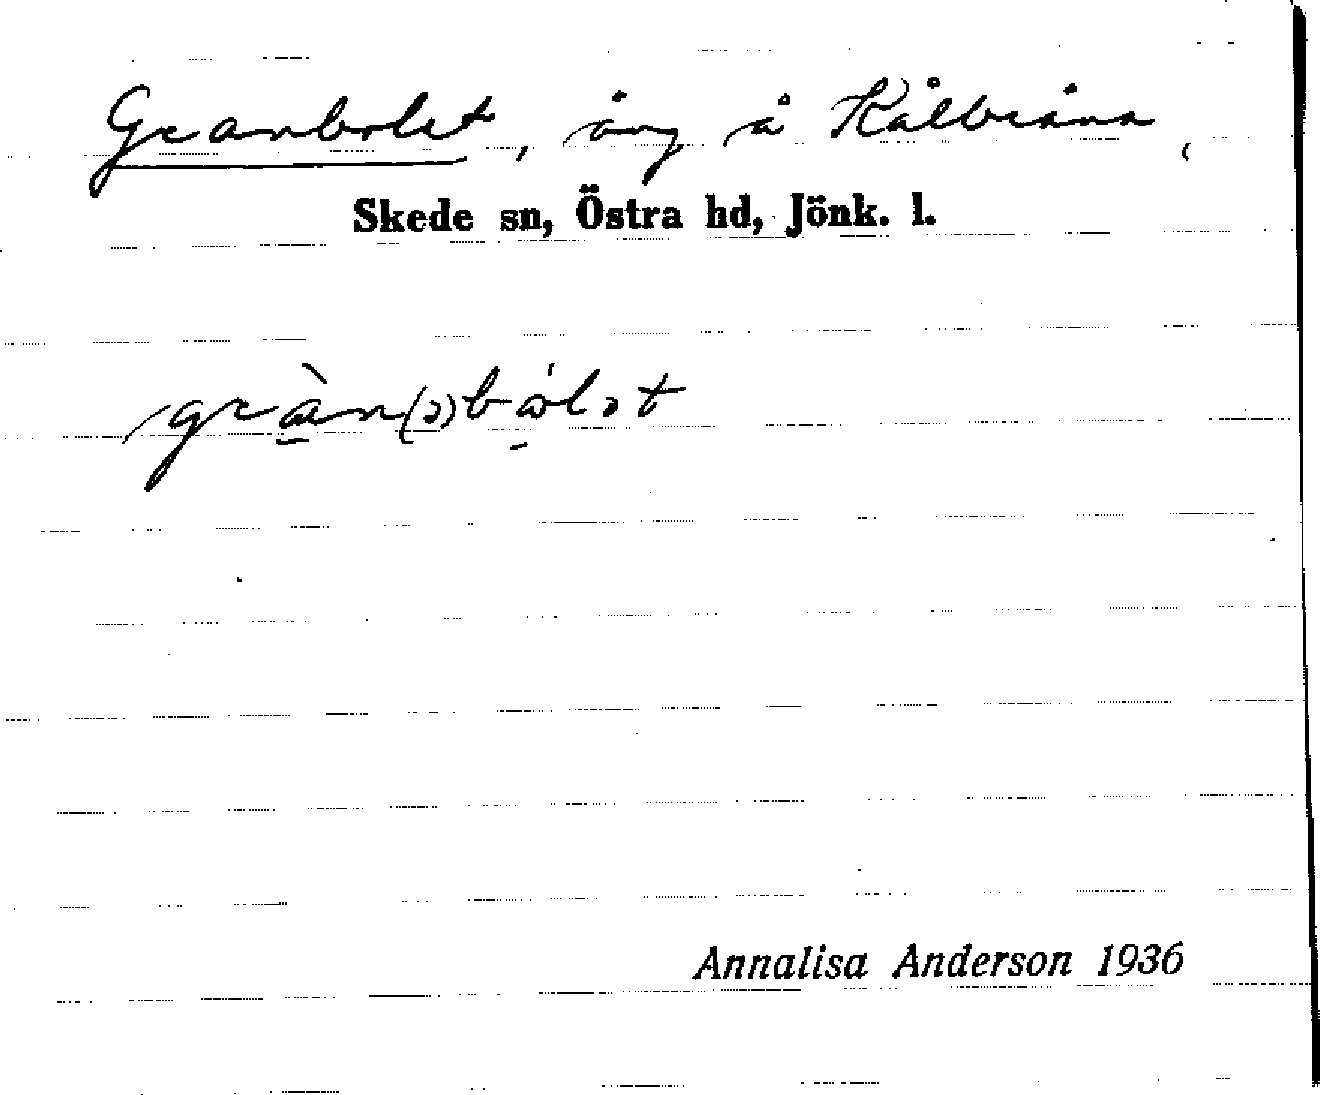 Granbolet, äng å Kålbråna,
Skede sn, Östra hd, Jönk. l.
gràn(ə)bålət
Annalisa Anderson 1936